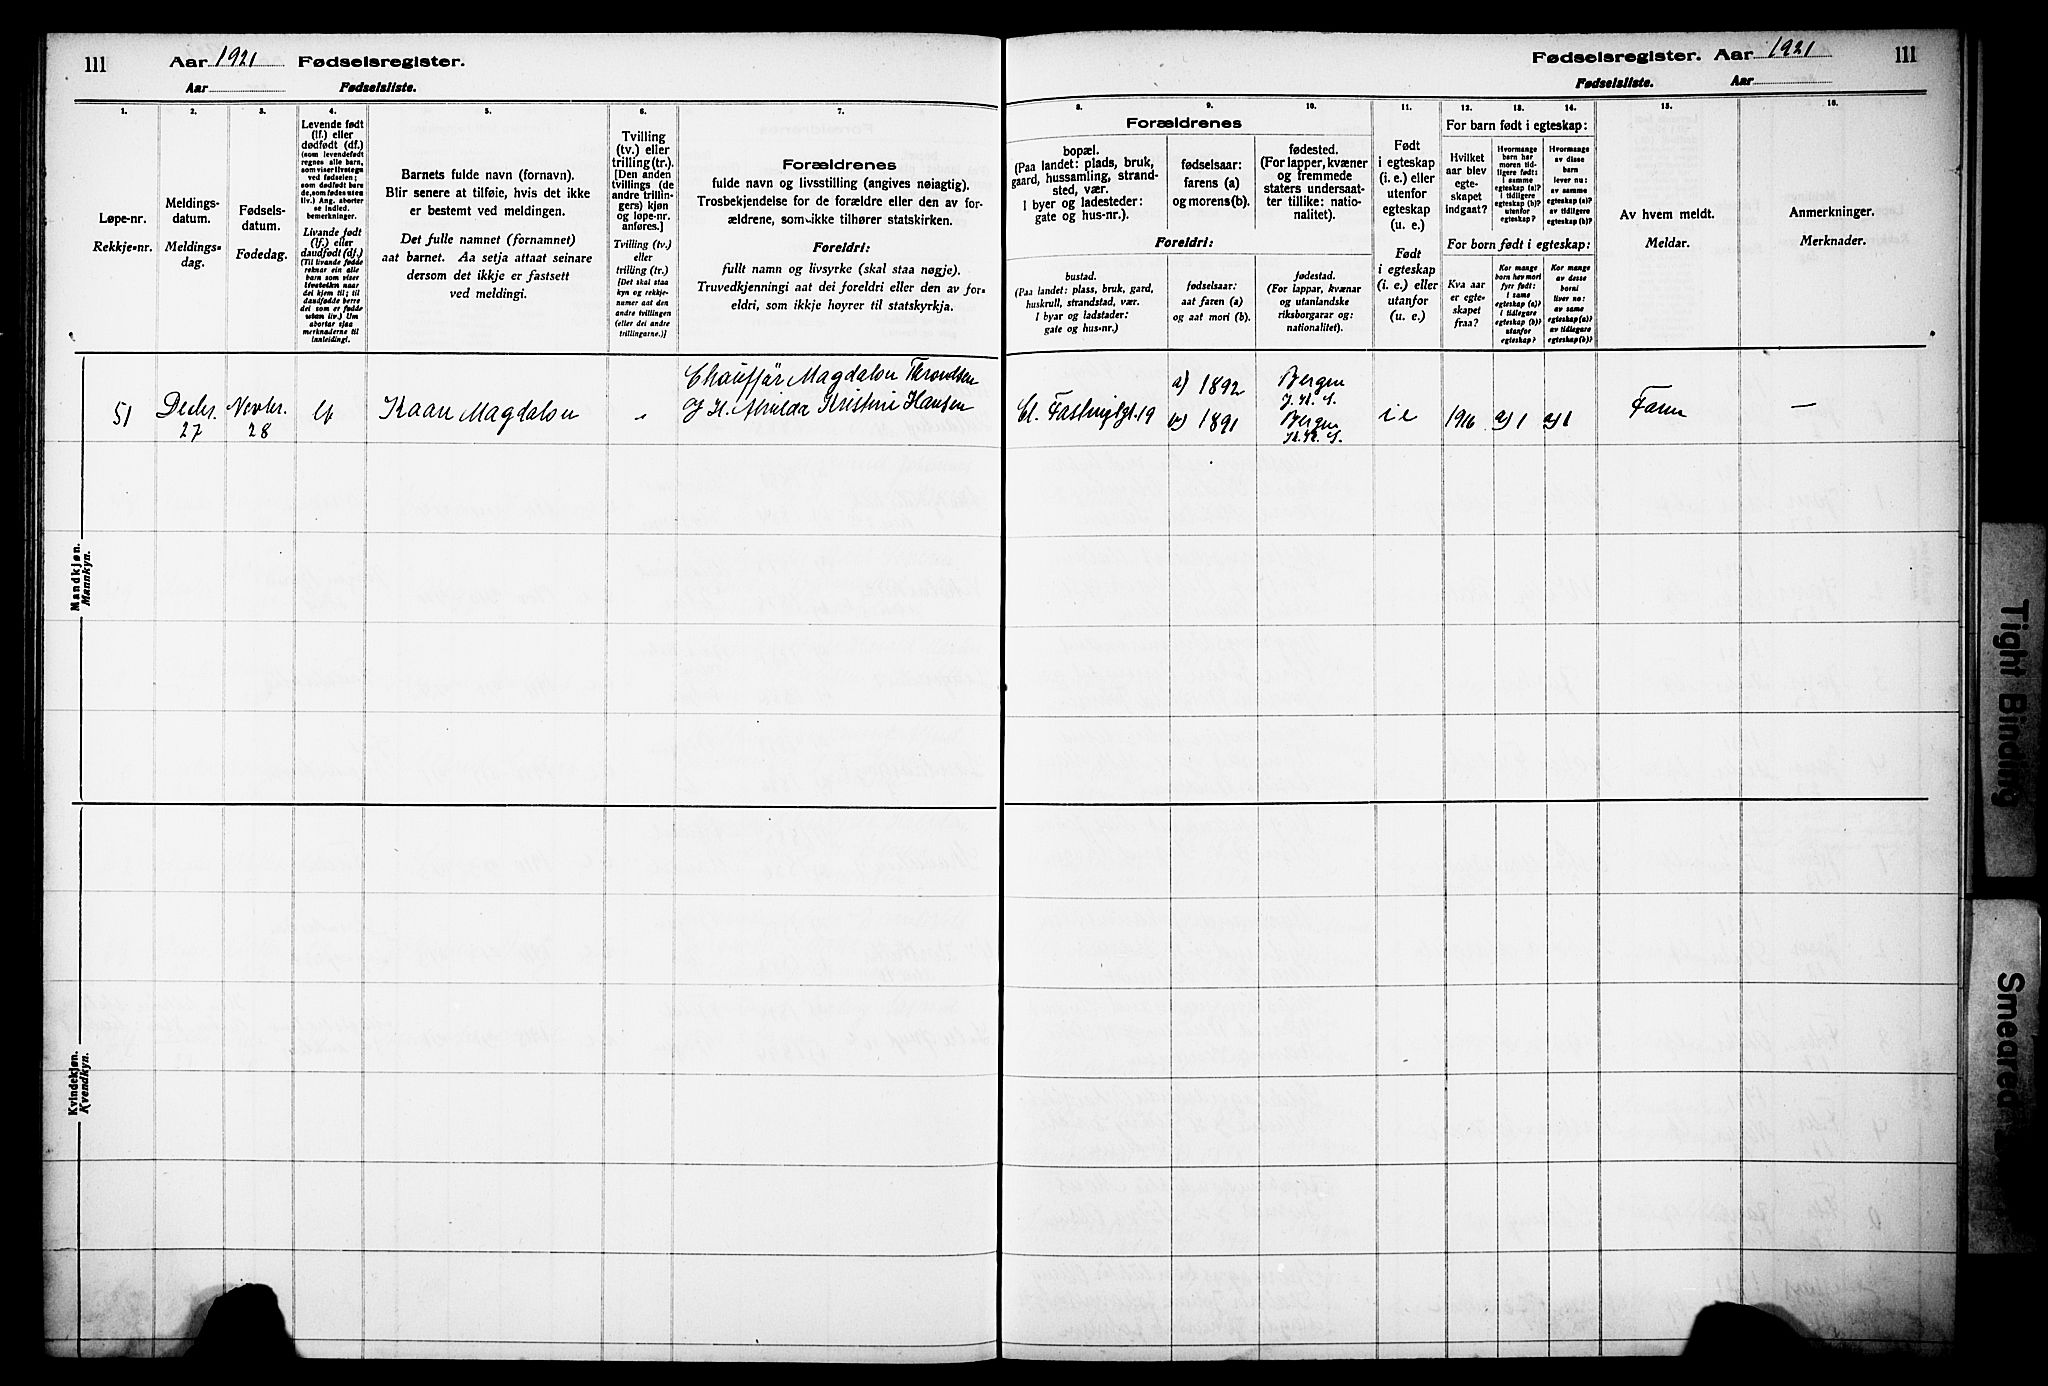 111 Aar 1921 Fødselsregister.
Aar Fødselsliste.
1. 2. 3. 4. 5. 6. 7.
Løpe-nr.
Rekkje-nr.
Meldings-
datum.
Meldings-
dag.
Fødsels-
datum.
Fødedag.
Levende født
(lf.) eller
dødfødt (df.)
(som levendefødt
regnes alle barn,
som viser livstegn
ved fødselen;
som dødfødt bare
de, som fødes uten
liv.) Ang. aborter
se indled.
bemerkninger.
Livande født
(lf.) eller
daudfødt (df.)
(Til livande fødde
reknar ein alle
barn som viser
livsteikn naar
dei kjem til; til
daudfødde berre
dei som er fødde
utan liv.) Um
abortar sjaa
merknaderne til
innleiding!.
Barnets fulde navn (fornavn).
Blir senere at tilføie, hvis det ikke
er bestemt ved meldingen.
Det fulle namnet (fornamnet)
aat barnet. Aa setja attaat seinare
dersom det ikkje er fastsett
ved meldingi.
Tvilling
(tv.) eller
trilling (tr.).
[Den anden
tvillings (de
andre trillin-
gers) kjøn
og løpe-nr.
anføres.]
Tvilling (tv.)
eller
trilling (tr.)
[Det skal staa
kyn og rekkje-
numer aat den
andre tvillingen
(eller dei andre
trillingarne.)]
Forældrenes
fulde navn og livsstilling (angives nøiagtig).
Trosbekjendelse for de forældre eller den av for-
ældrene, som ikke tilhører statskirken.
Foreldri:
fullt namn og livsyrke (skal staa nøgje).
Truvedkjenningi aat dei foreldri eller den av for-
eldri, som ikkje høyrer til statskyrkja.
Mandkjøn.
Mannkyn.
51
Decbr.
27
Novbr.
28
lf
Kaare Magdalon
Chauffør Magdalon Trondsen
og H. Alvilda Kristine Hansen
Kvindekjøn.
Kvendkyn.
Fødselsregister. Aar 1921 111
Fødselsliste. Aar
8. 9. 10. 11. 12. 13. 14. 15. 16.
Forældrenes
bopæl.
(Paa landet: plads, bruk,
gaard, hussamling, strand-
sted, vær.
I byer og ladesteder:
gate og hus-nr.).
fødselsaar:
farens (a)
og morens (b).
fødested.
(For lapper, kvæner
og fremmede
staters undersaat-
ter tillike: natio-
nalitet).
Foreldri:
bustad.
(Paa landet: plass, bruk, gard,
huskrull, strandstad, vær.
I byar og ladstader:
gate og hus-nr.)
fødselsaar:
aat faren (a)
og aat mori (b).
fødestad.
(For lappar, kvænar
og utanlandske
riksborgarar og:
nationalitet).
Født
i egteskap
(i. e.) eller
utenfor
egteskap
(u. e.)
Født
i egteskap
(i. e.) eller
utanfor
(u. e.)
For barn født i egteskap:
Hvilket
aar blev
egte-
skapet
indgaat?
Hvormange
barn har
moren tid-
ligere født:
i samme
egteskap (a)?
i tidligere
egteskap (b)?
utenfor
egteskap?
Hvormange
av disse
barn
lever nu:
av samme
egteskap (a)?
av tidligere
egteskap (b)?
For born født i egteskap:
Kva aar
er egte-
skapet
fraa?
Kor mange
born hev mori
fyrr født:
i same
egteskap (a)?
i tidlegare
egteskap (b)?
utanfor
egteskap?
Kor mange
av desse
borni
liver no:
av same
egteskap (a)?
av tidlegare
egteskap (b)?
Av hvem meldt.
Meldar.
Anmerkninger.
Merknader.
Cl. Fastingsgt. 19
a) 1892
b) 1891
Bergen
Bergen
i e
1916
a) 1
a) 1
Faren
—
Tight Binding
Smeared